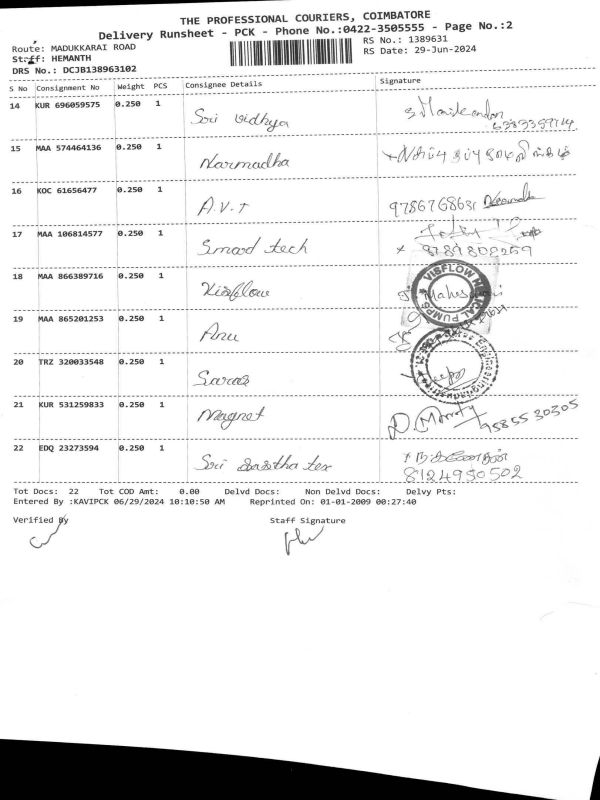 THE PROFESSIONAL COURIERS, COIMBATORE
Delivery Runsheet - PCK - Phone No.:0422-3505555 - Page No.:2
Route: MADUKKARAI ROAD RS No.: 1389631
Staff: HEMANTH RS Date: 29-Jun-2024
DRS No.: DCJB138963102
S No Consignment No Weight PCS Consignee Details Signature
14 KUR 696059575 0.250 1 Sri vidhya
15 MAA 574464136 0.250 1 Narmadha
16 KOC 61656477 0.250 1 A.V.T 9786768631
17 MAA 106814577 0.250 1 Smard tech x 9789802259
18 MAA 866389716 0.250 1 Visflow VISFLOW MEDICAL PUMPS
19 MAA 865201253 0.250 1 Anu
20 TRZ 320033548 0.250 1 Saras
21 KUR 531259833 0.250 1 Magnet 9585530305
22 EDQ 23273594 0.250 1 Sri sastha tex 8124950502
Tot Docs: 22 Tot COD Amt: 0.00 Delvd Docs: Non Delvd Docs: Delvy Pts:
Entered By :KAVIPCK 06/29/2024 10:10:50 AM Reprinted On: 01-01-2009 00:27:40
Verified By Staff Signature